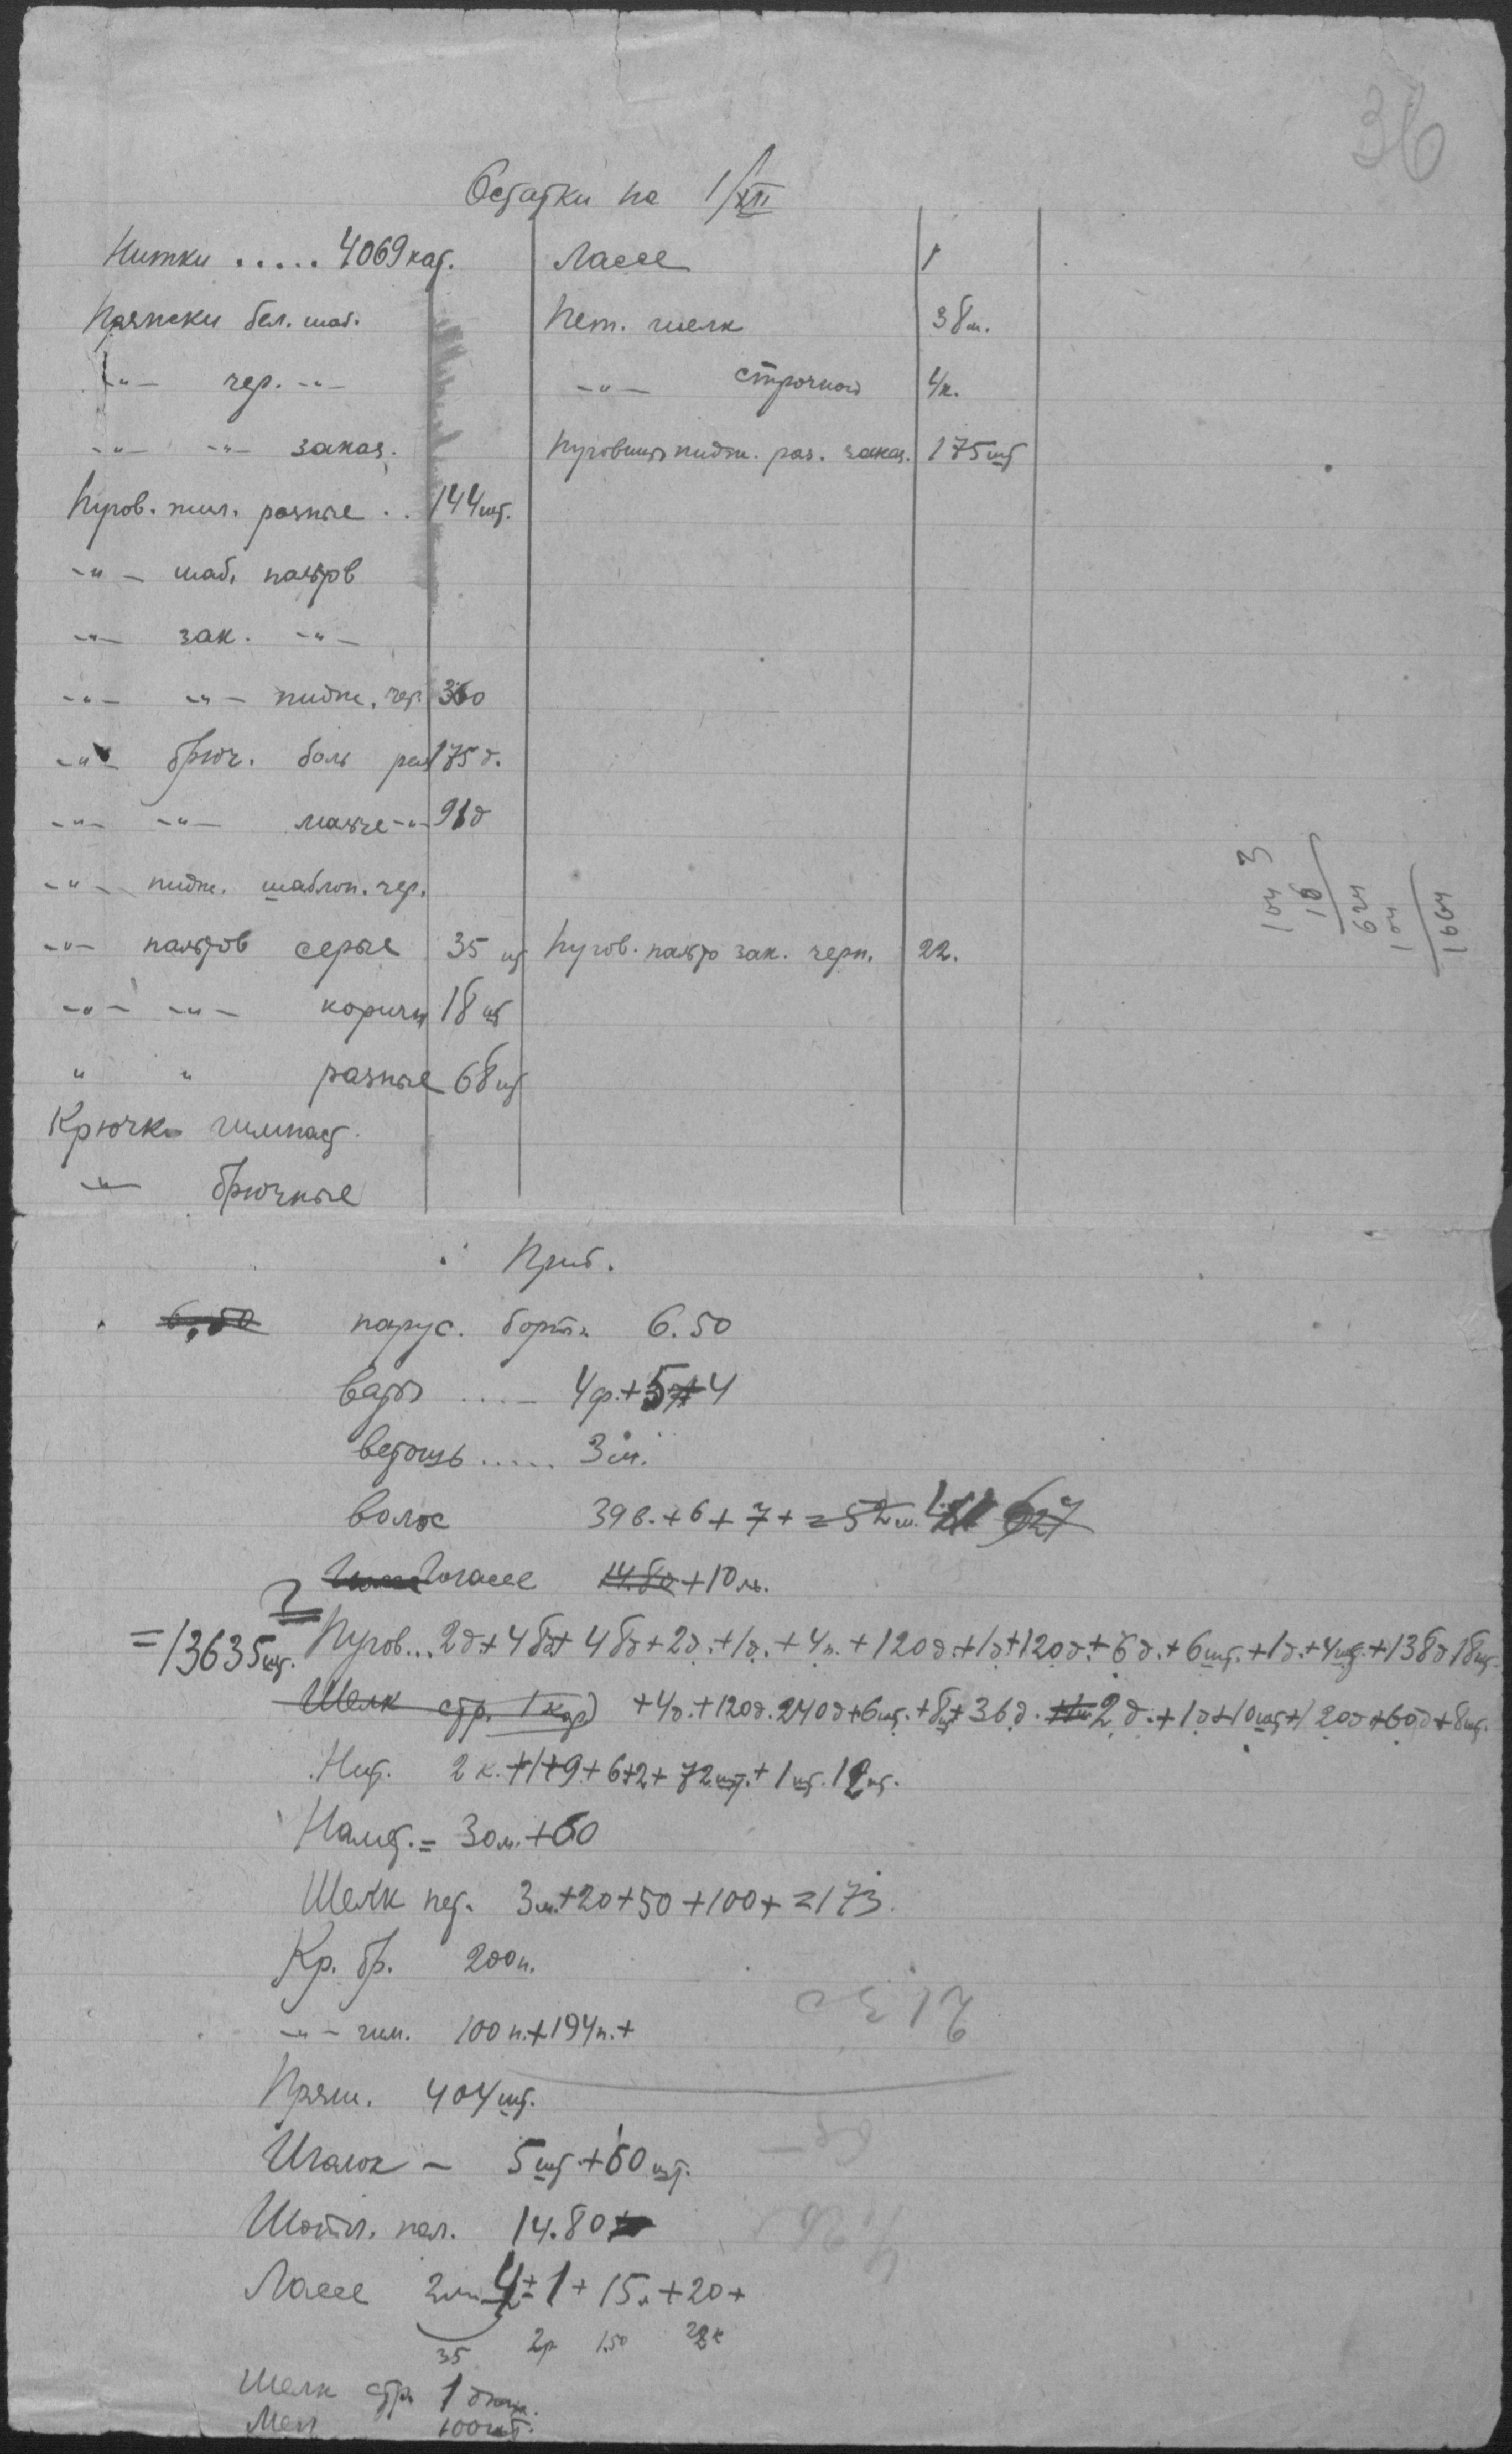 36
Остатки на 1/XII
Нитки ..... 4069 кат.
Пряжски бел. шаб.
-"- чер. -"-
-"- -"- заказ.
Пугов. жил. разные .. 144 шт.
-"- шаб. пальтов
-"- зак. -"-
-"- -"- пидж. чер. 360
-"- брюч. боль раз 175 д.
-"- -"- малые -"- 91 д
-"- пидж. шаблон. чер.
-"- пальтов серые 35 шт
-"- -"- коричн 18 шт
" " разные 68 шт
Крючки гимнаст.
-"- брючные
Лассе 1
Пет. шелк 38 м.
-"- строчной 4 к.
Пуговицы пидж. раз. заказ. 175 шт
Пугов. пальто зак. черн. 22.
104 3
16
624
104
1664
Приб.
6,50 парус. борт. 6.50
Ваты .... 4 ф. + 5 + 4
Ветошь ..... 3 м.
Волос 39 в. + 6 + 7 + = 52 м.
14.80 + 10 м.
= 13635 шт. Пугов... 2 д + 48 д + 48 д + 2 д. + 1 д. + 4 п. + 120 д. + 1 д + 120 д. + 6 д. + 6 шт. + 1 д. + 4 шт. + 138 д 18 шт.
Шелк стр. 1 кор) + 4 д. + 120 д. 240 д + 6 шт. + 8 шт + 36 д. 2 д. + 1 д + 10 шт + 120 д + 60 д + 8 шт.
Нит. 2 к. + 1 + 9 + 6 + 2 + 72 шт. + 1 шт. 12 шт.
Намет. = 30 м. + 60
Шелк пет. 3 м. + 20 + 50 + 100 + = 173.
Кр. бр. 200 п.
-"- гим. 100 п. + 194 п. +
Пряж. 404 шт.
Иголок - 5 шт. + 60 шт.
Шотл. пол. 14.80
Лассе 2 м 4 + 1 + 15 м + 20 +
35 2р 1.50 22 к
Шелк стр 1
Мел 100 шт.